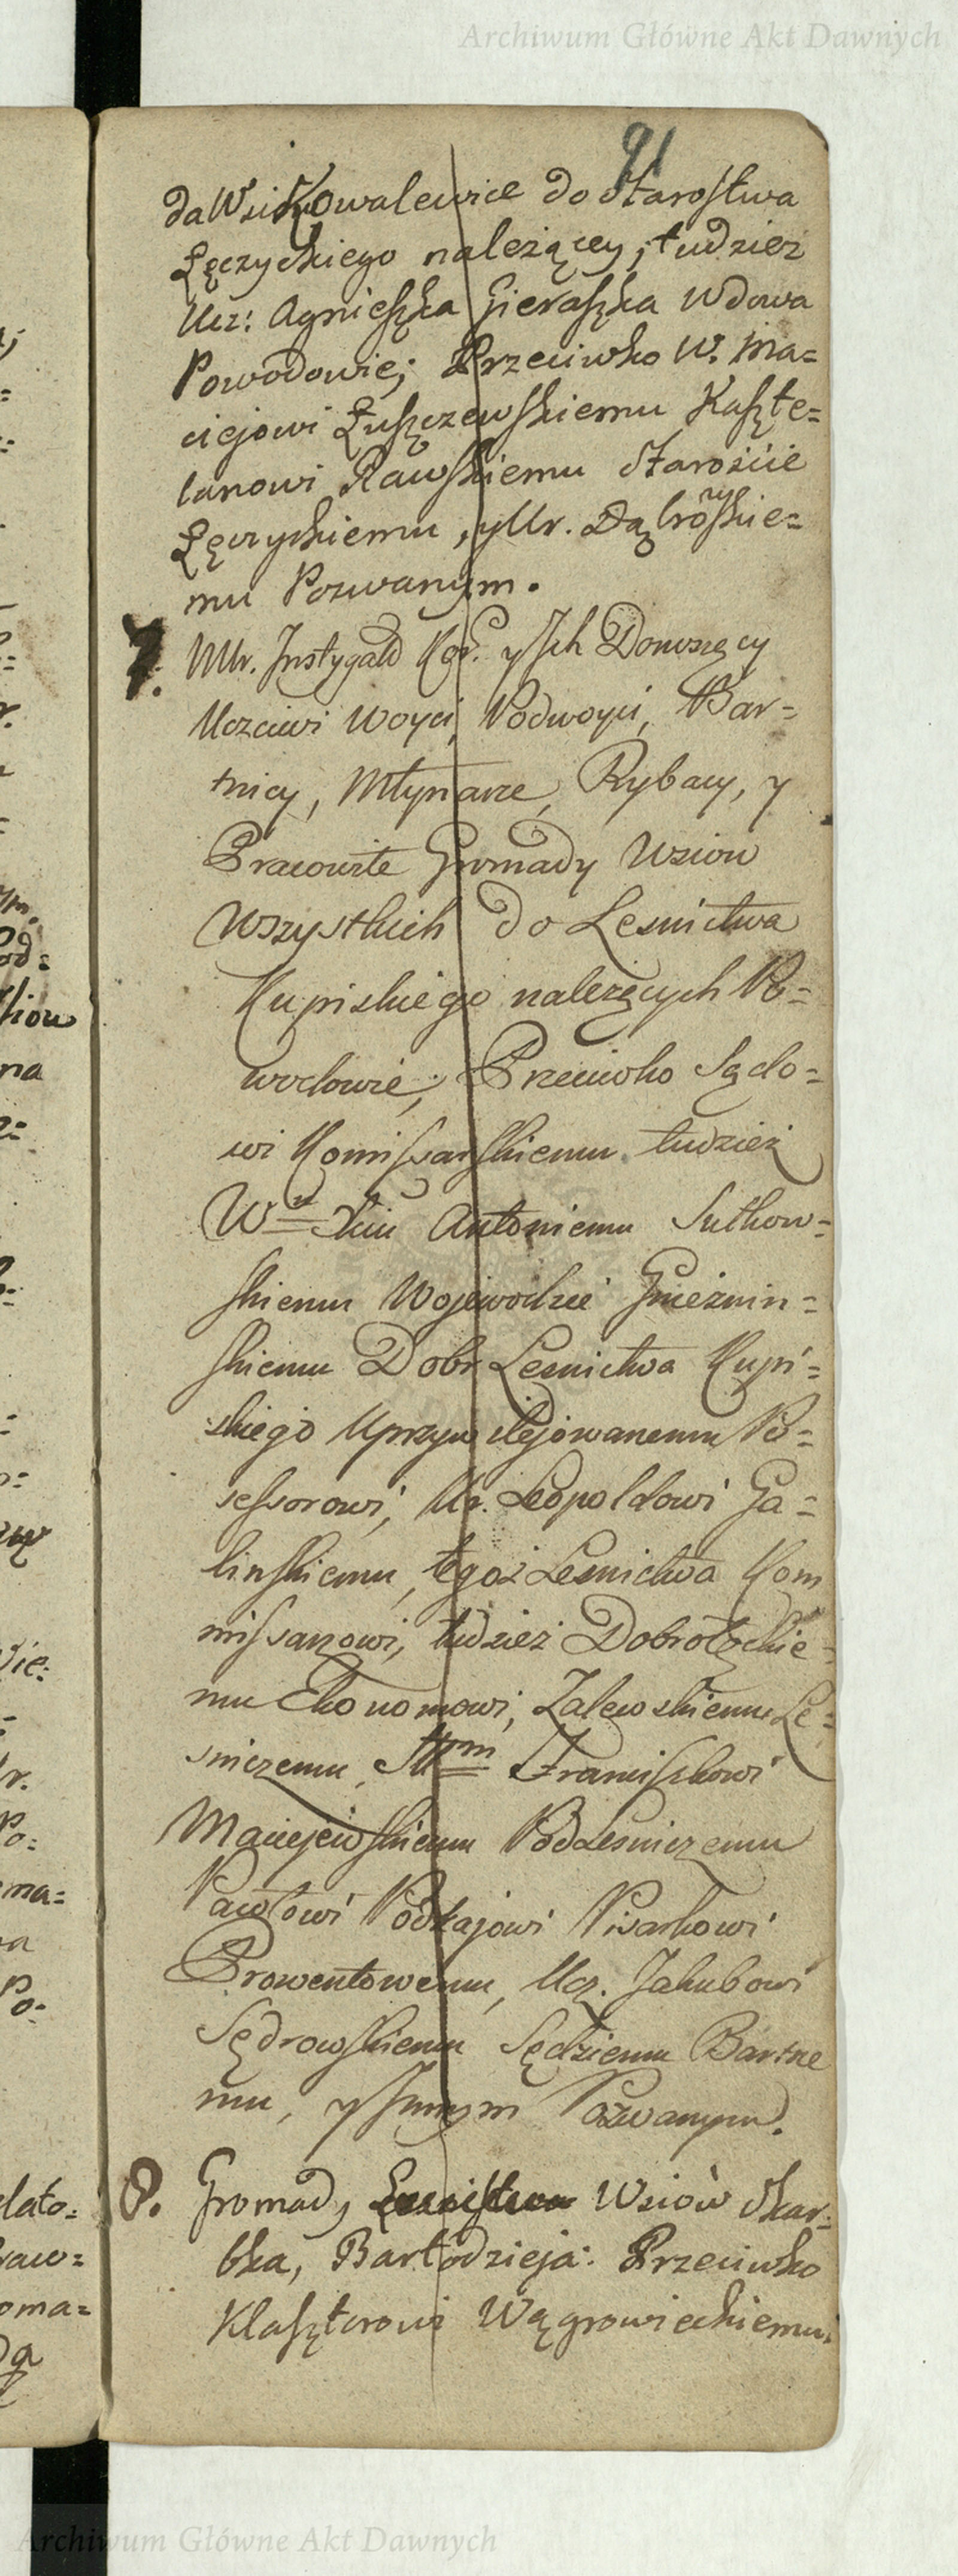 Archiwum Główne Akt Dawnych
91
da Wsi Kowalewice do Starostwa
Łęczyckiego należącey, tudzież
Ucz: Agnieszka Gieraszka Wdowa
Powodowie; Przeciwko W. Ma=
ciejowi Łuszczewskiemu Kaszte=
lanowi Rawskiemu Starościie
Łęczyckiemu, y Ur. Dąbrowskie=
mu Pozwanym.
7. Ur. Instygator Kor. y Ich Donoszący
Uczciwi Woyci, Podwoyci, Bar=
tnicy, Młynarze, Rybacy, y
Pracowite Gromady Wsiow
Wszystkich do Lesnictwa
Kupiskiego należących Po=
wodowie; Przeciwko Sądo=
wi Komissarskiemu tudzież
Antoniemu Sułkow=
skiemu Wojewodzie Gnieźnin=
skiemu Dobr Lesnictwa Kupi=
skiego Uprzywilejowanemu Po=
sessorowi, Ur. Leopoldowi Ga=
linskiemu, tegoż Lesnictwa Kom
missarzowi, tudzież Dobrołęckie=
mu Ekonomowi, Zalewskiemu Le=
sniczemu, Franciszkowi
Maciejewskiemu Podlesniczemu
Pawłowi Podkajowi Pisarkowi
Prowentowemu, Ucz. Jakubowi
Sędrowskiemu Sędziemu Bartne
mu, y Innym Pozwanym.
8. Gromady Wsiów Skar=
bka, Bartodzieja: Przeciwko
Klasztorowi Wągrowieckiemu.
Archiwum Główne Akt Dawnych